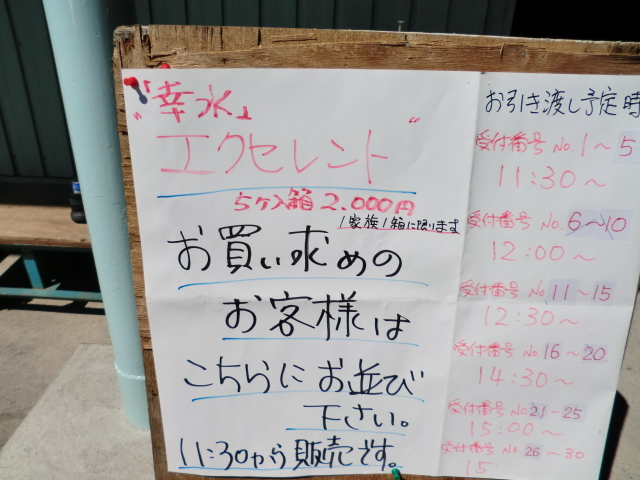 『幸水』
"エクセレント"
5ケ入箱 2.000円
1家族1箱に限ります
お買い求めの
お客様は
こちらにお並び
下さい。
11:30から販売です。
お引き渡し予定時
受付番号 No.1〜5
11:30〜
受付番号 No.6〜10
12:00〜
受付番号 No.11〜15
12:30〜
受付番号 No.16〜20
14:30〜
受付番号 No.21-25
15:00〜
受付番号 No.26〜30
15